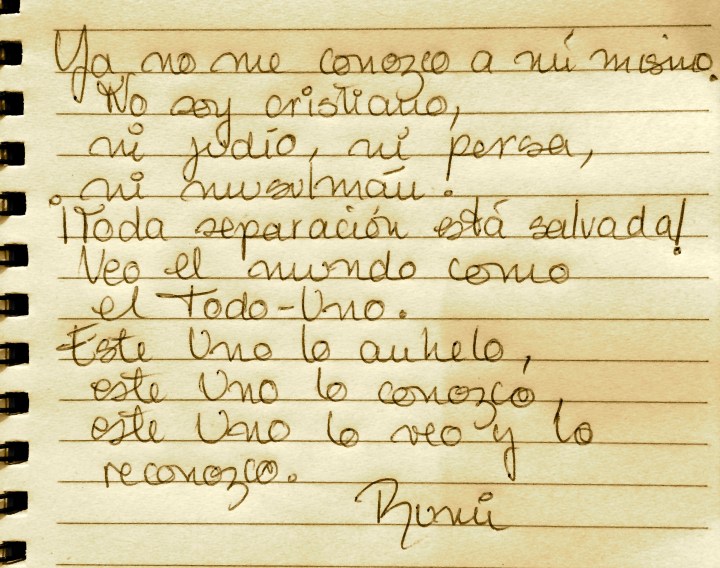 Ya no me conozco a mí mismo.
No soy cristiano,
ni judío, ni persa,
ni musulmán.
¡Toda separación está salvada!
Veo el mundo como
el Todo-Uno.
Este Uno lo anhelo,
este Uno lo conozco,
este Uno lo veo y lo
reconozco.
Rumi